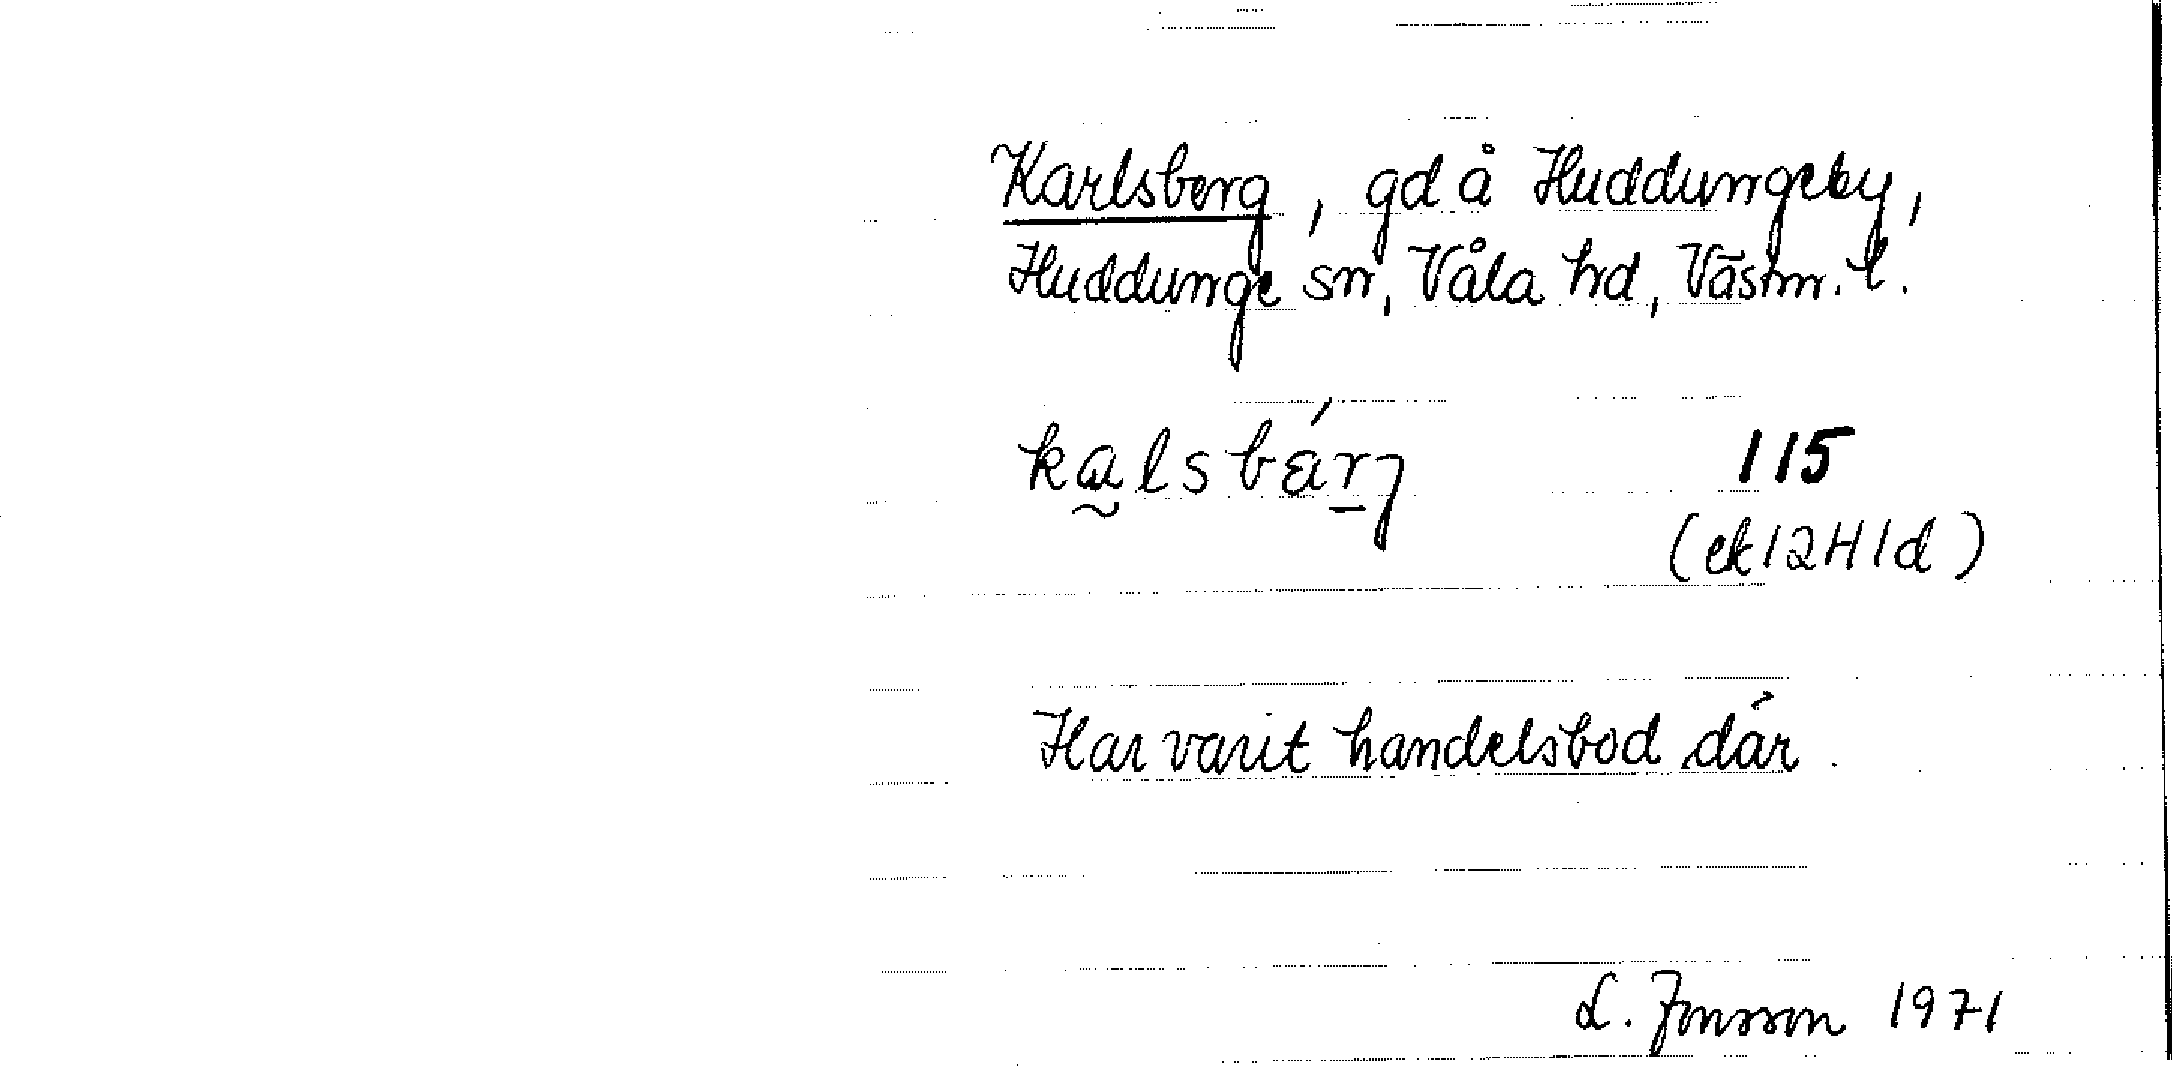 Karlsberg, gd å Huddungeby,
Huddunge sn, Våla hd, Västm. l.
ka̰lsbár̲ȷ 115
(ek 12H1d)
Har varit handelsbod där.
L. Jonsson 1971